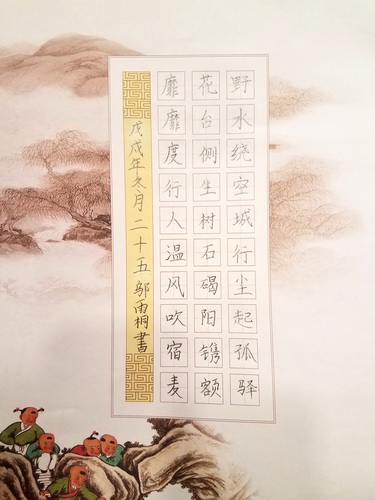 野水绕空城行尘起孤驿
花台侧生树石碣阳镌额
靡靡度行人温风吹宿麦
戊戌年冬月二十五邬雨桐書